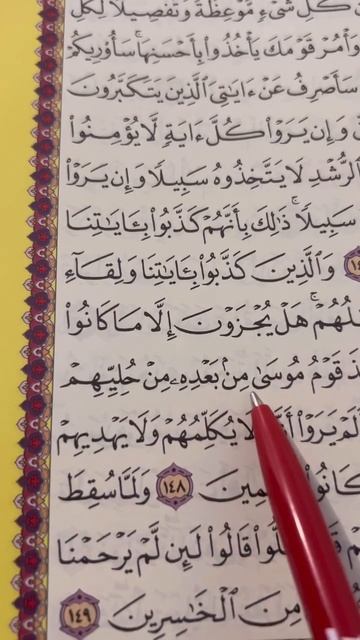 كُلِّ شَىْءٍ مَّوْعِظَةً وَتَفْصِيلًا لِّكُلِّ
وَأْمُرْ قَوْمَكَ يَأْخُذُوا۟ بِأَحْسَنِهَا ۚ سَأُو۟رِيكُمْ
سَأَصْرِفُ عَنْ ءَايَـٰتِىَ ٱلَّذِينَ يَتَكَبَّرُونَ
وَإِن يَرَوْا۟ كُلَّ ءَايَةٍ لَّا يُؤْمِنُوا۟
ٱلرُّشْدِ لَا يَتَّخِذُوهُ سَبِيلًا وَإِن يَرَوْا۟
سَبِيلًا ۚ ذَٰلِكَ بِأَنَّهُمْ كَذَّبُوا۟ بِـَٔايَـٰتِنَا
وَٱلَّذِينَ كَذَّبُوا۟ بِـَٔايَـٰتِنَا وَلِقَآءِ
هَلْ يُجْزَوْنَ إِلَّا مَا كَانُوا۟
قَوْمُ مُوسَىٰ مِنۢ بَعْدِهِۦ مِنْ حُلِيِّهِمْ
لَمْ يَرَوْا۟ لَا يُكَلِّمُهُمْ وَلَا يَهْدِيهِمْ
١٤٨ وَلَمَّا سُقِطَ
قَالُوا۟ لَئِن لَّمْ يَرْحَمْنَا
مِنَ ٱلْخَـٰسِرِينَ ١٤٩